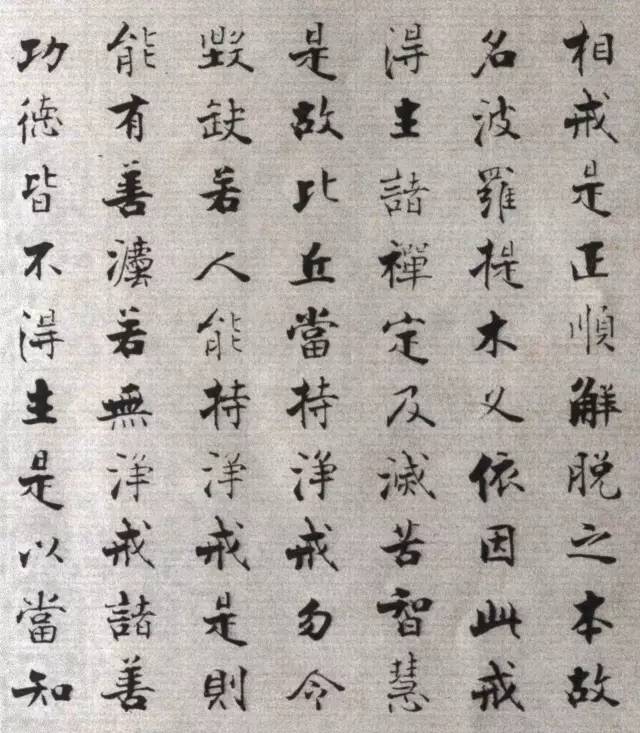 相戒是正順解脱之本故
名波羅提木叉依因此戒
得生諸禪定及滅苦智慧
是故比丘當持淨戒勿令
毀缺若人能持淨戒是則
能有善法若無淨戒諸善
功德皆不得生是以當知